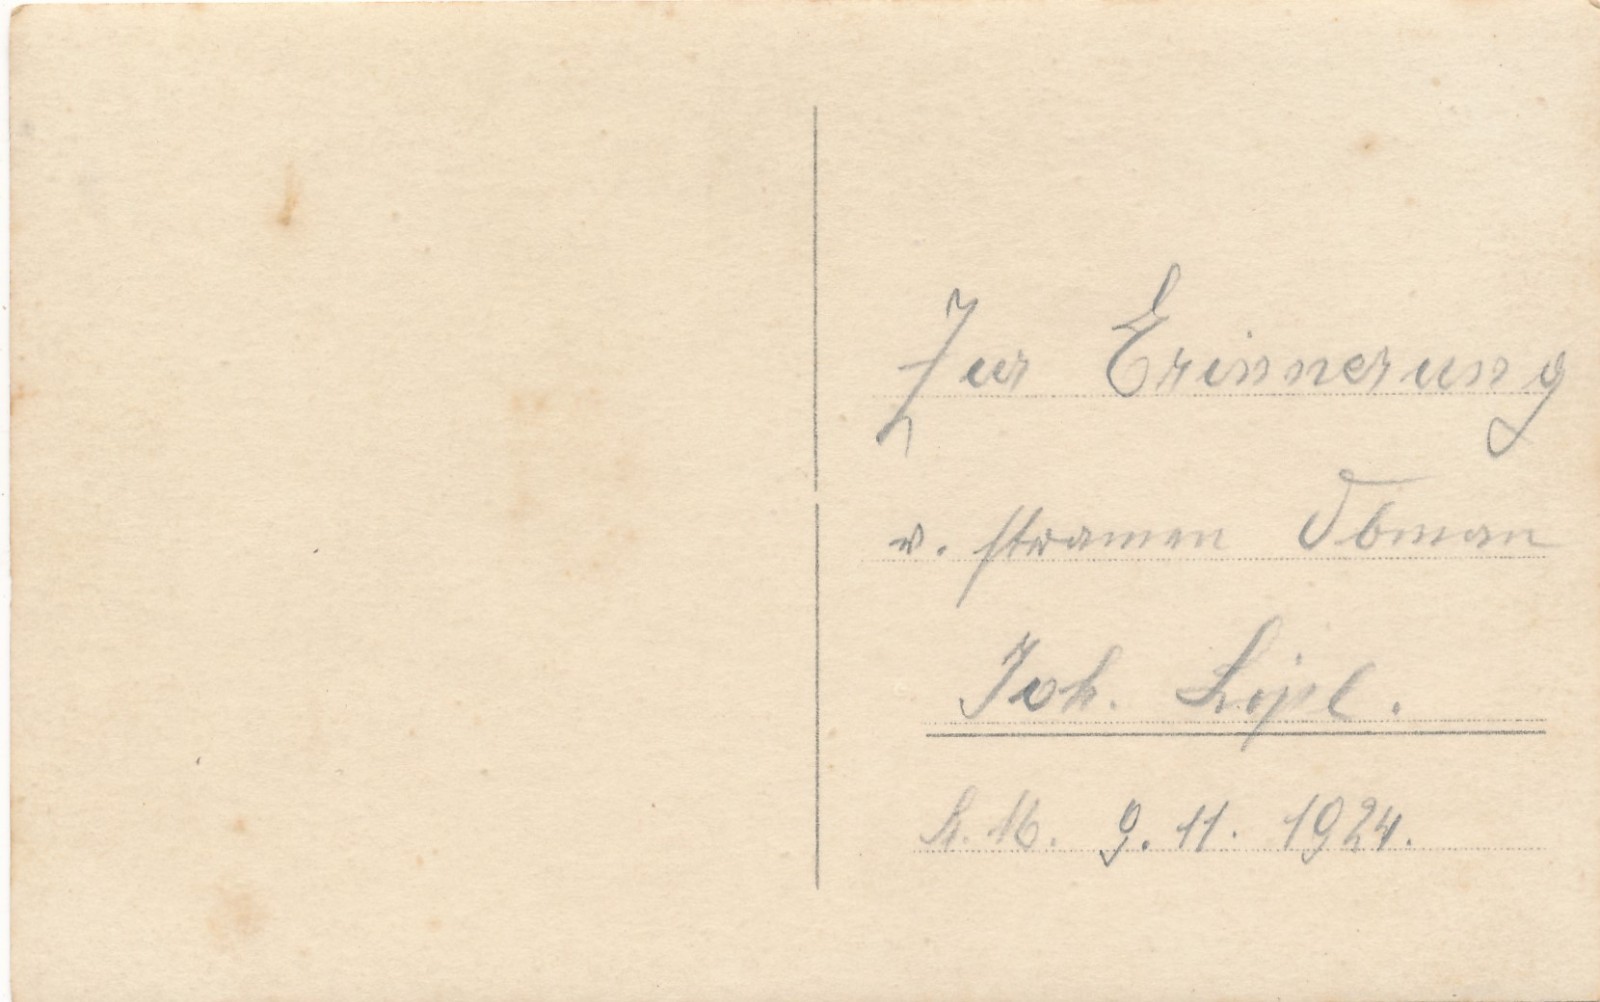 Zur Erinnerung
v. stramen Obman
Joh. Lipl.
9. 11. 1924.